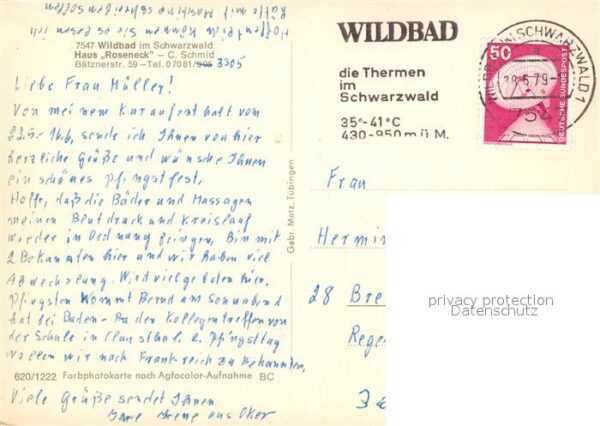 Hoffentlich können sie es lesen ich
hätte mit Maschine schreiben sollen
7547 Wildbad im Schwarzwald
Haus „Roseneck" – C. Schmid
Bätznerstr. 59 – Tel. 07081/ 3305
Liebe Frau Müller!
Von meinem Kuraufenthalt vom
22.5.-16.6. sende ich Ihnen von hier
herzliche Grüße und wünsche Ihnen
ein schönes Pfingstfest.
Hoffe, daß die Bäder und Massagen
meinen Blutdruck und Kreislauf
wieder in Ordnung bringen. Bin mit
2 Bekannten hier und wir haben viel
Abwechslung. Wird viel geboten hier.
Pfingsten kommt Bernd am Sonnabend
hat bei Baden-Baden Kollegentreffen von
der Schule in Clausthal. 2. Pfingsttag
wollen wir nach Frankreich zu Bekannten.
620/1222 Farbphotokarte nach Agfacolor-Aufnahme BC
Viele Grüße sendet Ihnen
Ihre Irene aus Oker
Gebr. Metz, Tübingen
WILDBAD
die Thermen
im
Schwarzwald
35°-41°C
430-950 m ü. M.
IM SCHWARZWALD 1
28.5.79
754
50
DEUTSCHE BUNDESPOST
Frau
Hermin
28 Bre
Rege
privacy protection
Datenschutz